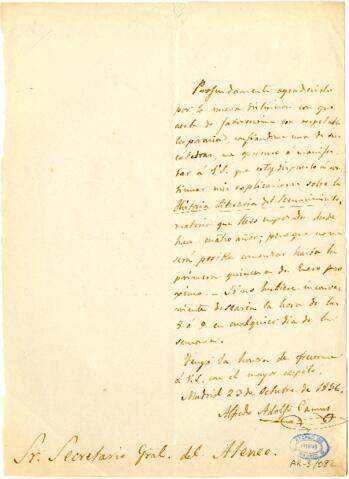 Profundamente agradecido
por la nueva distincion con que
acaba de favorecerme esa respetable
corporacion, confiandome una de sus
catedras, me apresuro á manifes-
tar á V.S. que estoy dispuesto á con-
tinuar mis esplicaciones sobre la
Historia literaria del Renacimiento,
materia que llevo empezada desde
hace cuatro años; pero que no me
será posible comenzar hasta la
primera quincena de Enero pro-
ximo. — Si no hubiere inconve-
niente desearia la hora de las
8 á 9 en cualquier dia de la
semana.
Tengo la honra de ofrecerme
á V.S. con el mayor respeto.
Madrid 23 de Octubre de 1856.
Alfredo Adolfo Camus
Sr. Secretario Gral. del Ateneo.